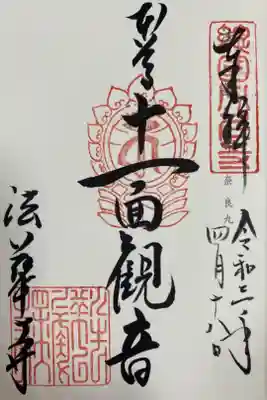 奉拝
奈良九
令和二年
四月十八日
本尊
十一面観音
法華寺